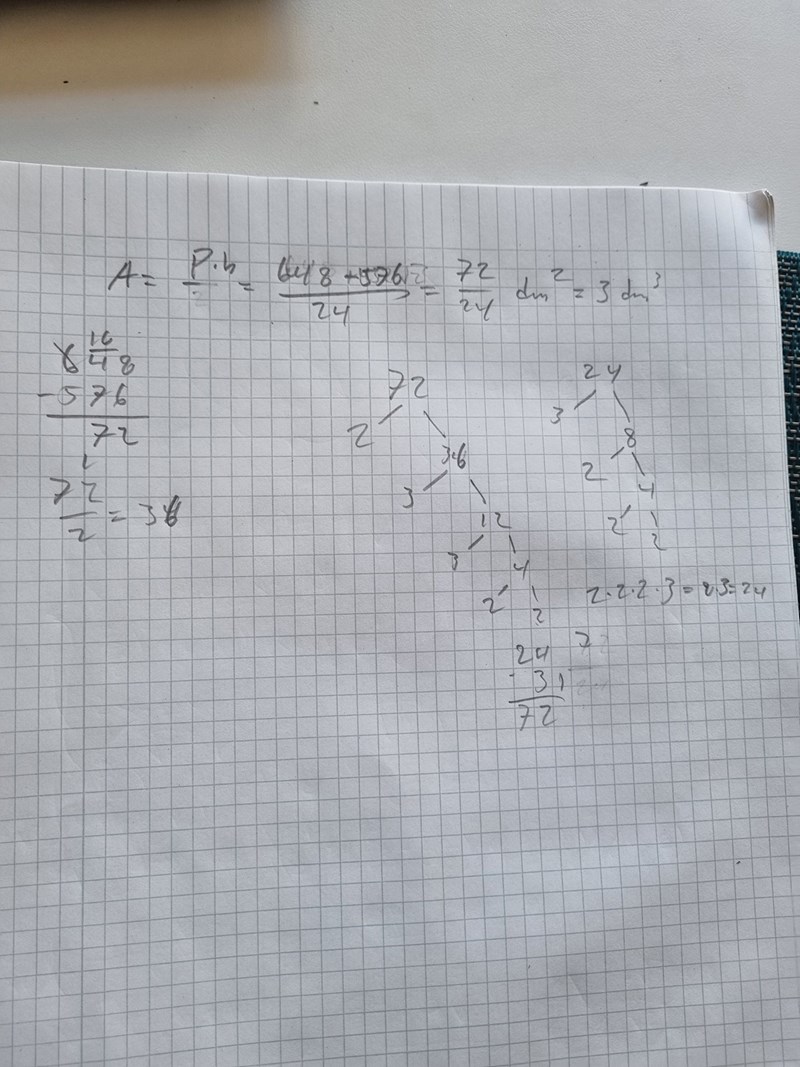 A = P·h = 648 + 576 / 24 = 72 / 24 dm² = 3 dm³
16
648
- 576
72
72 / 2 = 36
72
2
36
3
12
3
4
2 2
24
3
8
2
4
2
2
2·2·2·3 = 8·3 = 24
24 7
· 31
72